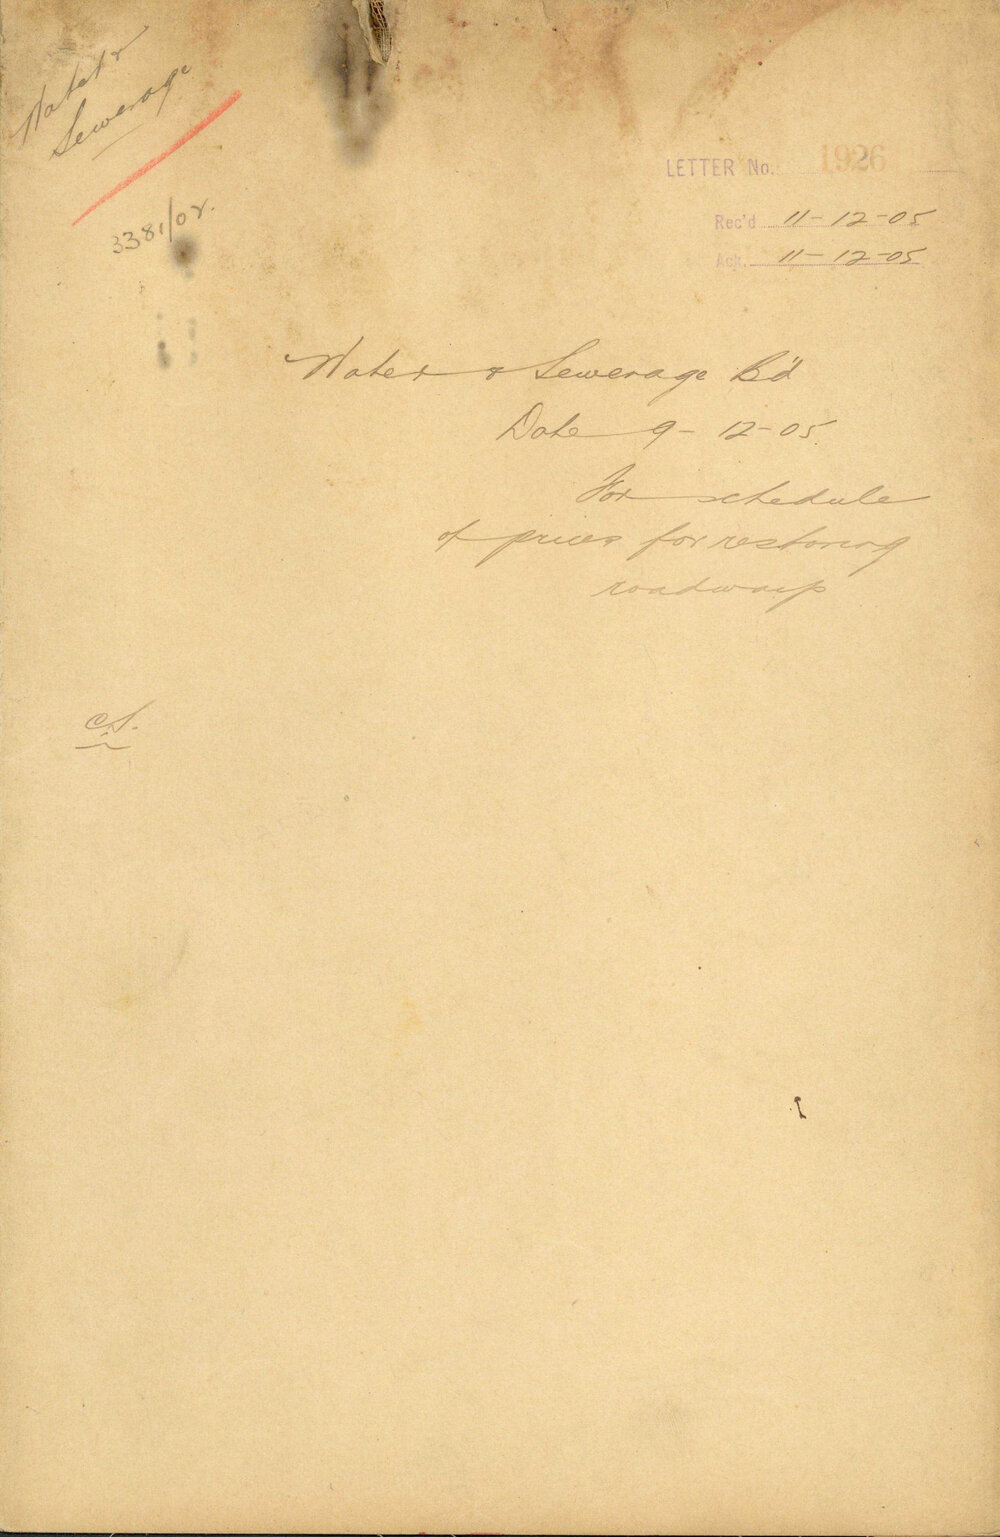 Water &
Sewerage
3381/02.
LETTER No. 1926
Rec'd 11-12-05
Ack. 11-12-05
Water & Sewerage B'd
Date 9-12-05.
For schedule
of prices for restoring
roadways
C.S.